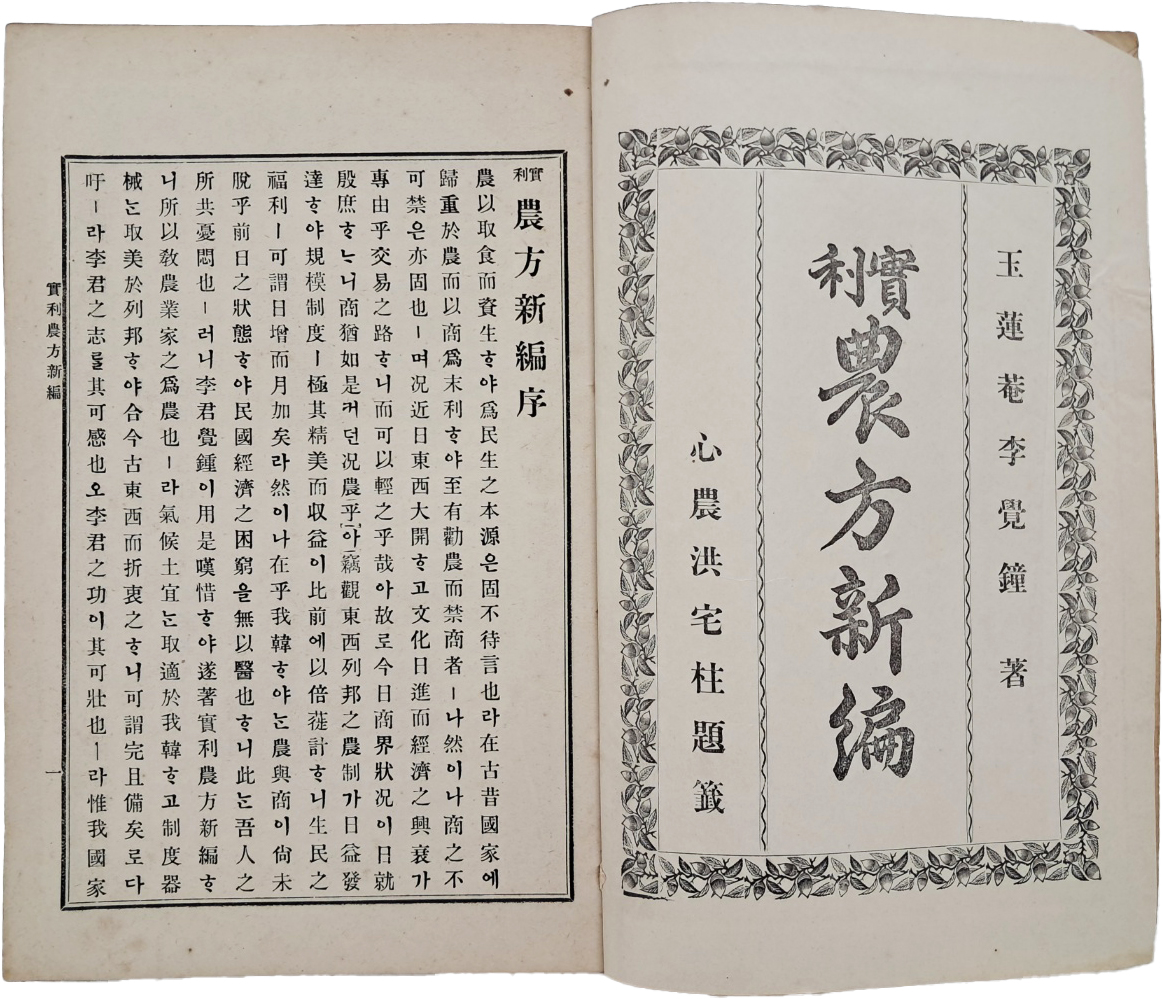 玉蓮菴李覺鐘 著
實利農方新編
心農洪宅柱題籤
實利農方新編序
農以取食而資生ᄒᆞ야爲民生之本源은固不待言也라在古昔國家에
歸重於農而以商爲末利ᄒᆞ야至有勸農而禁商者ㅣ나然이나商之不
可禁은亦固也ㅣ며况近日東西大開ᄒᆞ고文化日進而經濟之興衰가
專由乎交易之路ᄒᆞ니而可以輕之乎哉아故로今日商界狀况이日就
殷庶ᄒᆞᄂᆞ니商猶如是커던况農乎(아)竊觀東西列邦之農制가日益發
達ᄒᆞ야規模制度ㅣ極其精美而収益이比前에以倍蓰計ᄒᆞ니生民之
福利ㅣ可謂日增而月加矣라然이나在乎我韓ᄒᆞ야ᄂᆞᆫ農與商이尙未
脫乎前日之狀態ᄒᆞ야民國經濟之困窮을無以醫也ᄒᆞ니此ᄂᆞᆫ吾人之
所共憂悶也ㅣ러니李君覺鍾이用是嘆惜ᄒᆞ야遂著實利農方新編ᄒᆞ
니所以敎農業家之爲農也ㅣ라氣候土宜ᄂᆞᆫ取適於我韓ᄒᆞ고制度器
械ᄂᆞᆫ取美於列邦ᄒᆞ야合今古東西而折衷之ᄒᆞ니可謂完且備矣로다
吁ㅣ라李君之志를其可感也오李君之功이其可壯也ㅣ라惟我國家
實利農方新編
一